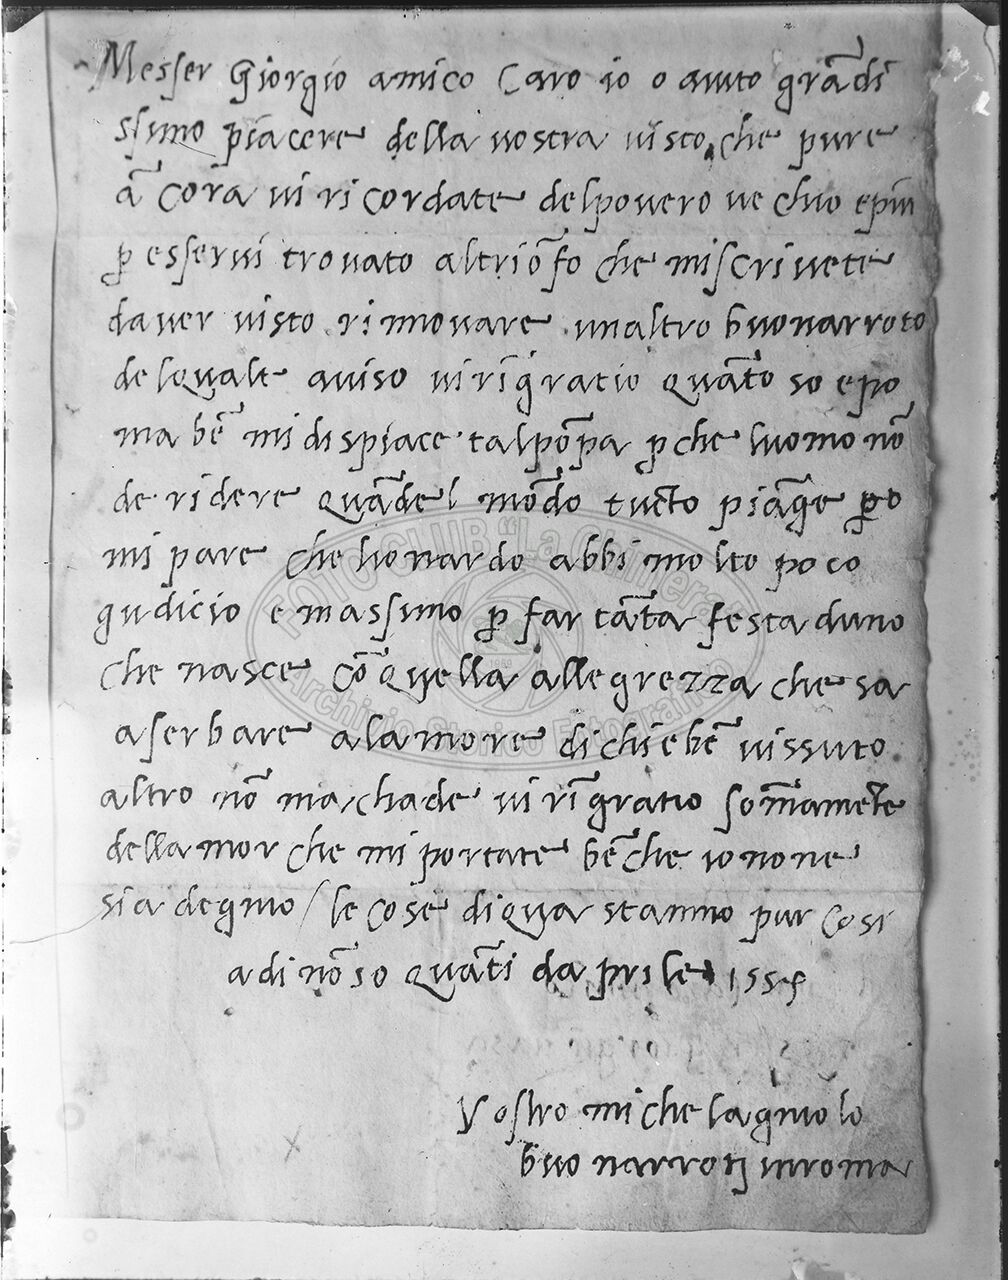 Messer Giorgio amico Caro io o auto grãdi
ssimo piacere della vostra visto che pure
ã cora vi ricordate delpovero ve chio e piu
p esservi trovato altriõfo che miscrivete
daver visto rinnovare unaltro buonarroto
delquale aviso viri͂gratio quãto so e po
ma be͂ mi dispiace talpõpa p che luomo nõ
de ridere quãdel mõdo tucto piãge po
mi pare che lionardo abbi molto poco
gudicio e massimo p far tãta festa duno
che nasce cõ quella allegrezza che sa
a serbare alamorte di chi e be͂ vissuto
altro nõ machade vi ri͂gratio sommamẽte
dellamor che mi portate be͂che io none
sia degnio / le cose diqua stanno pur cosi
adi nõ so quãti daprile 1554
Vostro michelagniolo
buonarroti in roma
FOTO CLUB "La Chimera"
Archivio Storico Fotografico